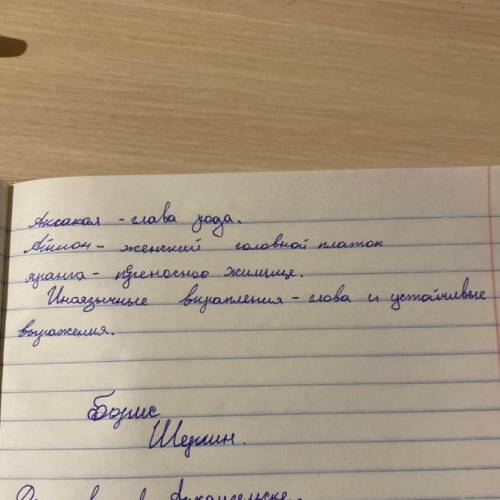 Аксакал - глава рода.
- женский головной платок
яранга - переносное жилище.
Иноязычные вкрапления - слова и устойчивые
выражения.
Борис
Шергин.
Архангельске.